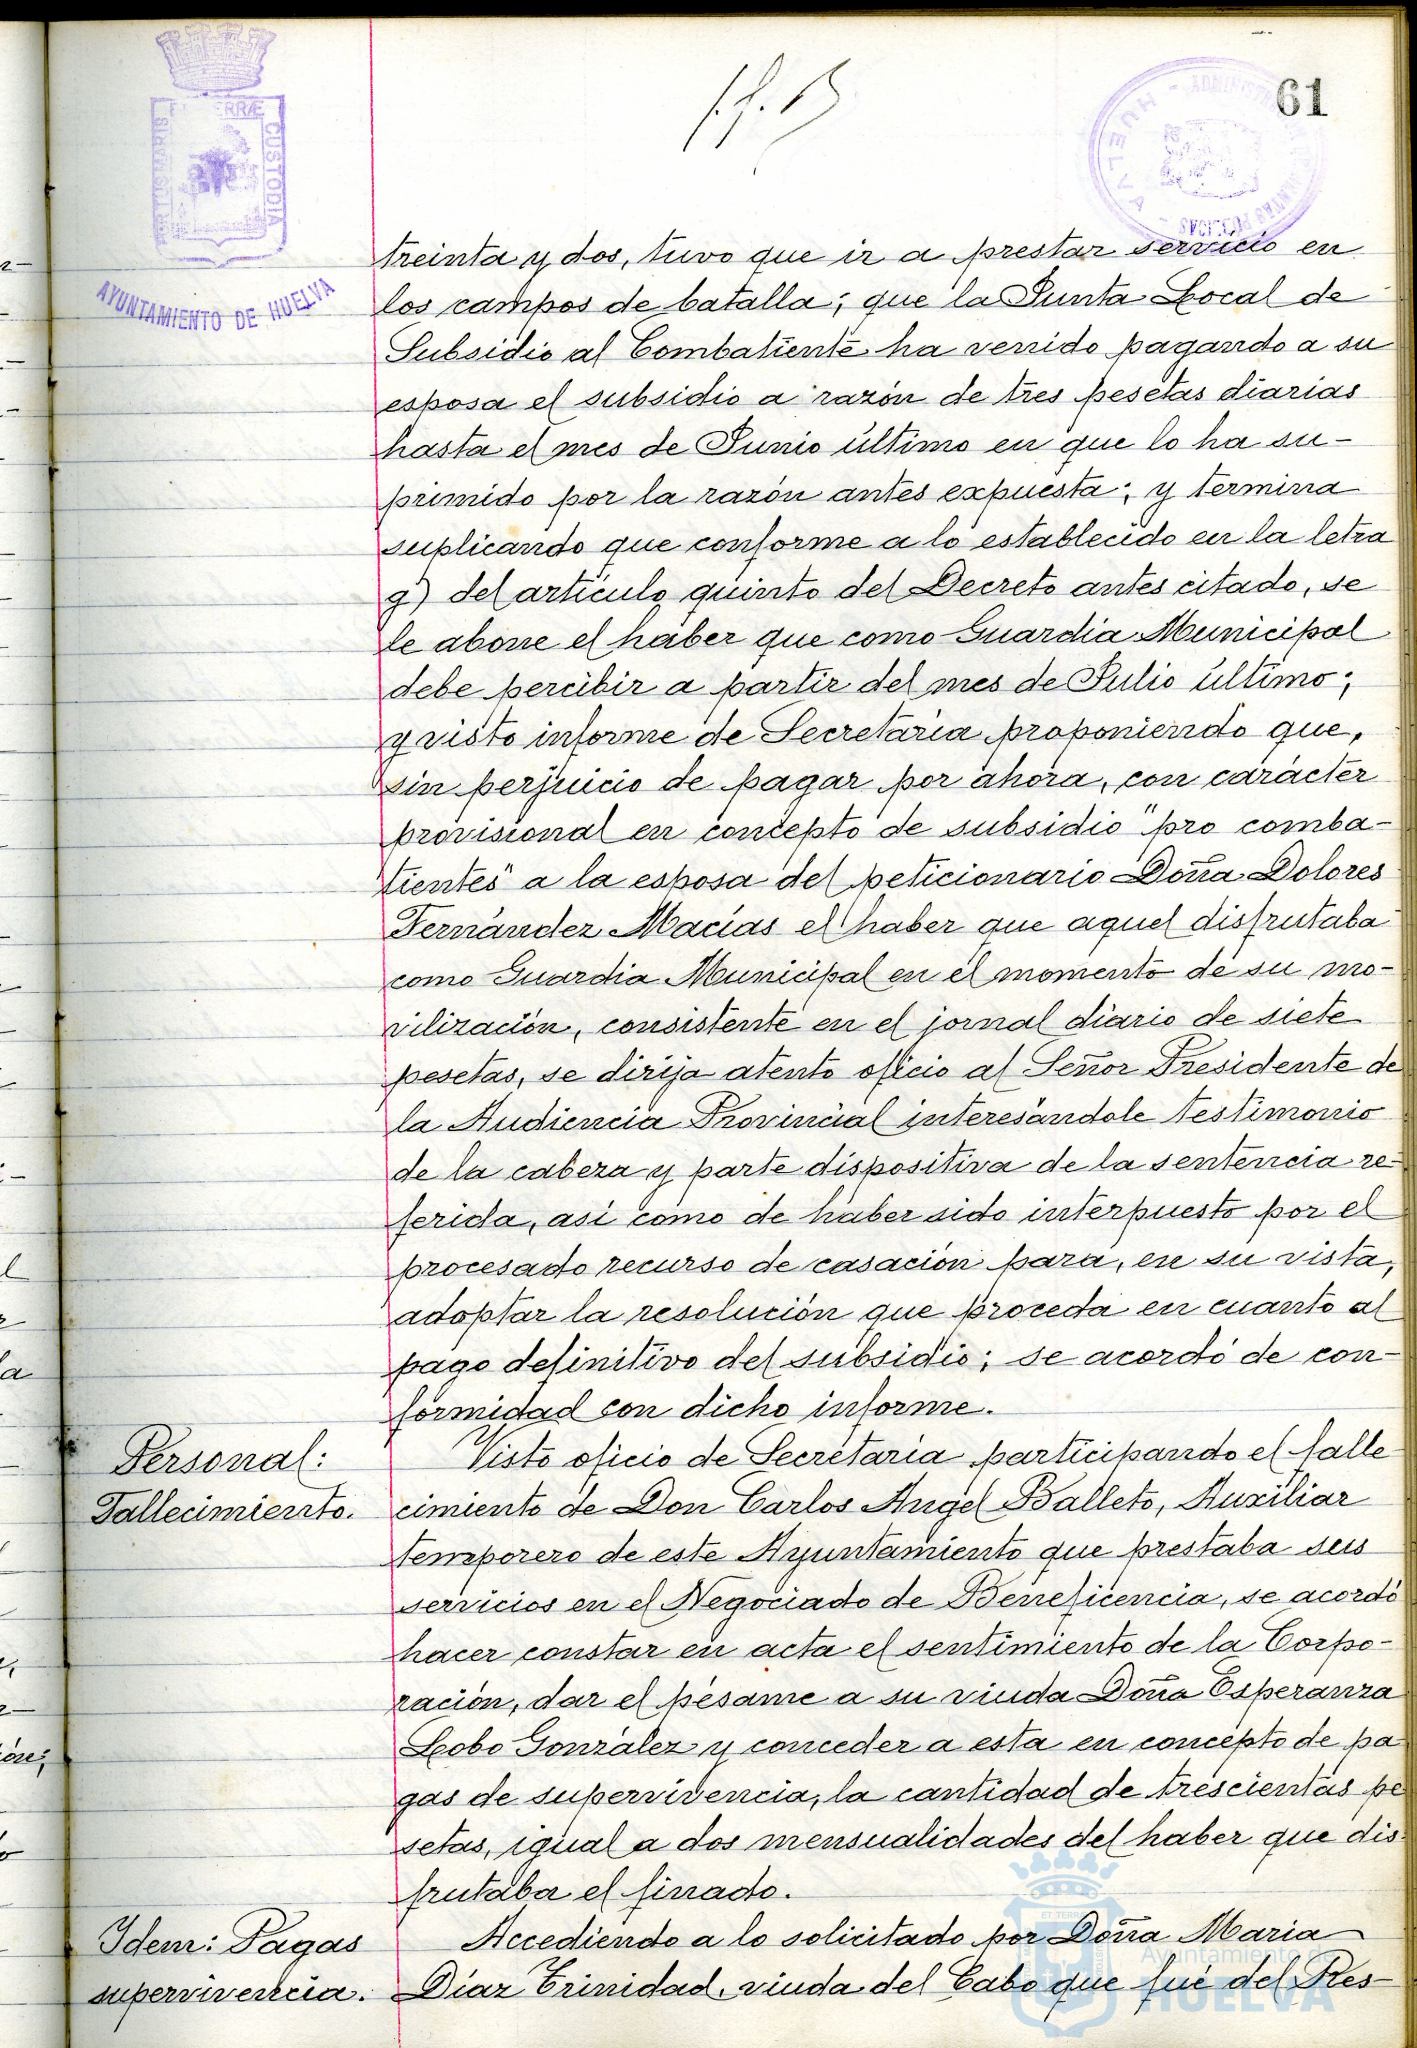 61
PORTUS MARIS ET TERRÆ CUSTODIA
AYUNTAMIENTO DE HUELVA
HUELVA
treinta y dos, tuvo que ir a prestar servicio en
los campos de batalla; que la Junta Local de
Subsidio al Combatiente ha venido pagando a su
esposa el subsidio a razón de tres pesetas diarias
hasta el mes de Junio último en que lo ha su-
primido por la razón antes expuesta; y termina
suplicando que conforme a lo establecido en la letra
g) del artículo quinto del Decreto antes citado, se
le abone el haber que como Guardia Municipal
debe percibir a partir del mes de Julio último;
y visto informe de Secretaria proponiendo que,
sin perjuicio de pagar por ahora, con carácter
provisional en concepto de subsidio "pro comba-
tientes" a la esposa del peticionario Doña Dolores
Fernández Macías el haber que aquel disfrutaba
como Guardia Municipal en el momento de su mo-
vilización, consistente en el jornal diario de siete
pesetas, se dirija atento oficio al Señor Presidente de
la Audiencia Provincial interesándole testimonio
de la cabeza y parte dispositiva de la sentencia re-
ferida, así como de haber sido interpuesto por el
procesado recurso de casación para, en su vista,
adoptar la resolución que proceda en cuanto al
pago definitivo del subsidio; se acordó de con-
formidad con dicho informe.
Personal:
Fallecimiento.
Visto oficio de Secretaría participando el falle
cimiento de Don Carlos Angel Balleto, Auxiliar
temporero de este Ayuntamiento que prestaba sus
servicios en el Negociado de Beneficencia, se acordó
hacer constar en acta el sentimiento de la Corpo-
ración, dar el pésame a su viuda Doña Esperanza
Lobo González y conceder a esta en concepto de pa
gas de supervivencia, la cantidad de trescientas pe
setas, igual a dos mensualidades del haber que dis
frutaba el finado.
Idem: Pagas
supervivencia.
Accediendo a lo solicitado por Doña Maria
Díaz Trinidad, viuda del Cabo que fué del Res-
Ayuntamiento de
HUELVA